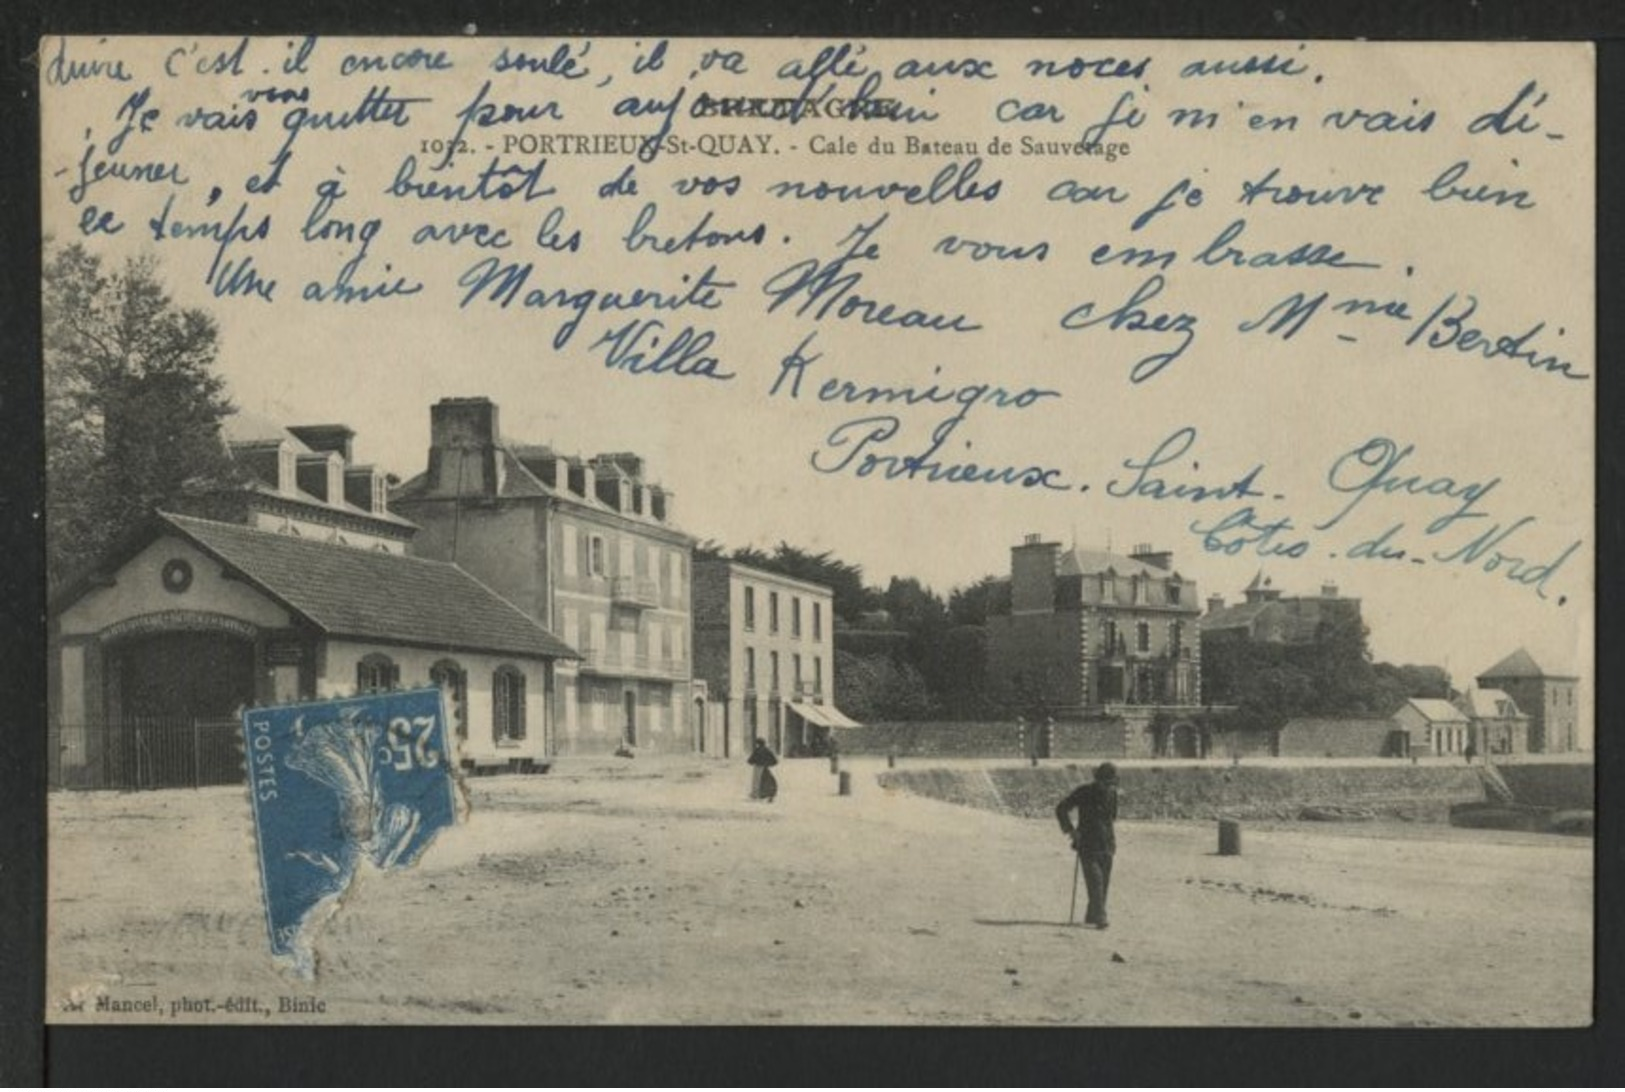 c'est il encore soulé, il va allé aux noces aussi.
Je vais vous quitter pour aujourd'hui car je m'en vais dé-
BRETAGNE
1032. - PORTRIEUX-St-QUAY. - Cale du Bateau de Sauvetage
-jeuner, et à bientôt de vos nouvelles car je trouve bien
le temps long avec les bretons. Je vous embrasse.
Une amie Marguerite Moreau chez Mme Bertin
Villa Kermigro
Portrieux. Saint-Quay
Côtes-du-Nord.
25c
POSTES
Mancel, phot.-édit., Binic